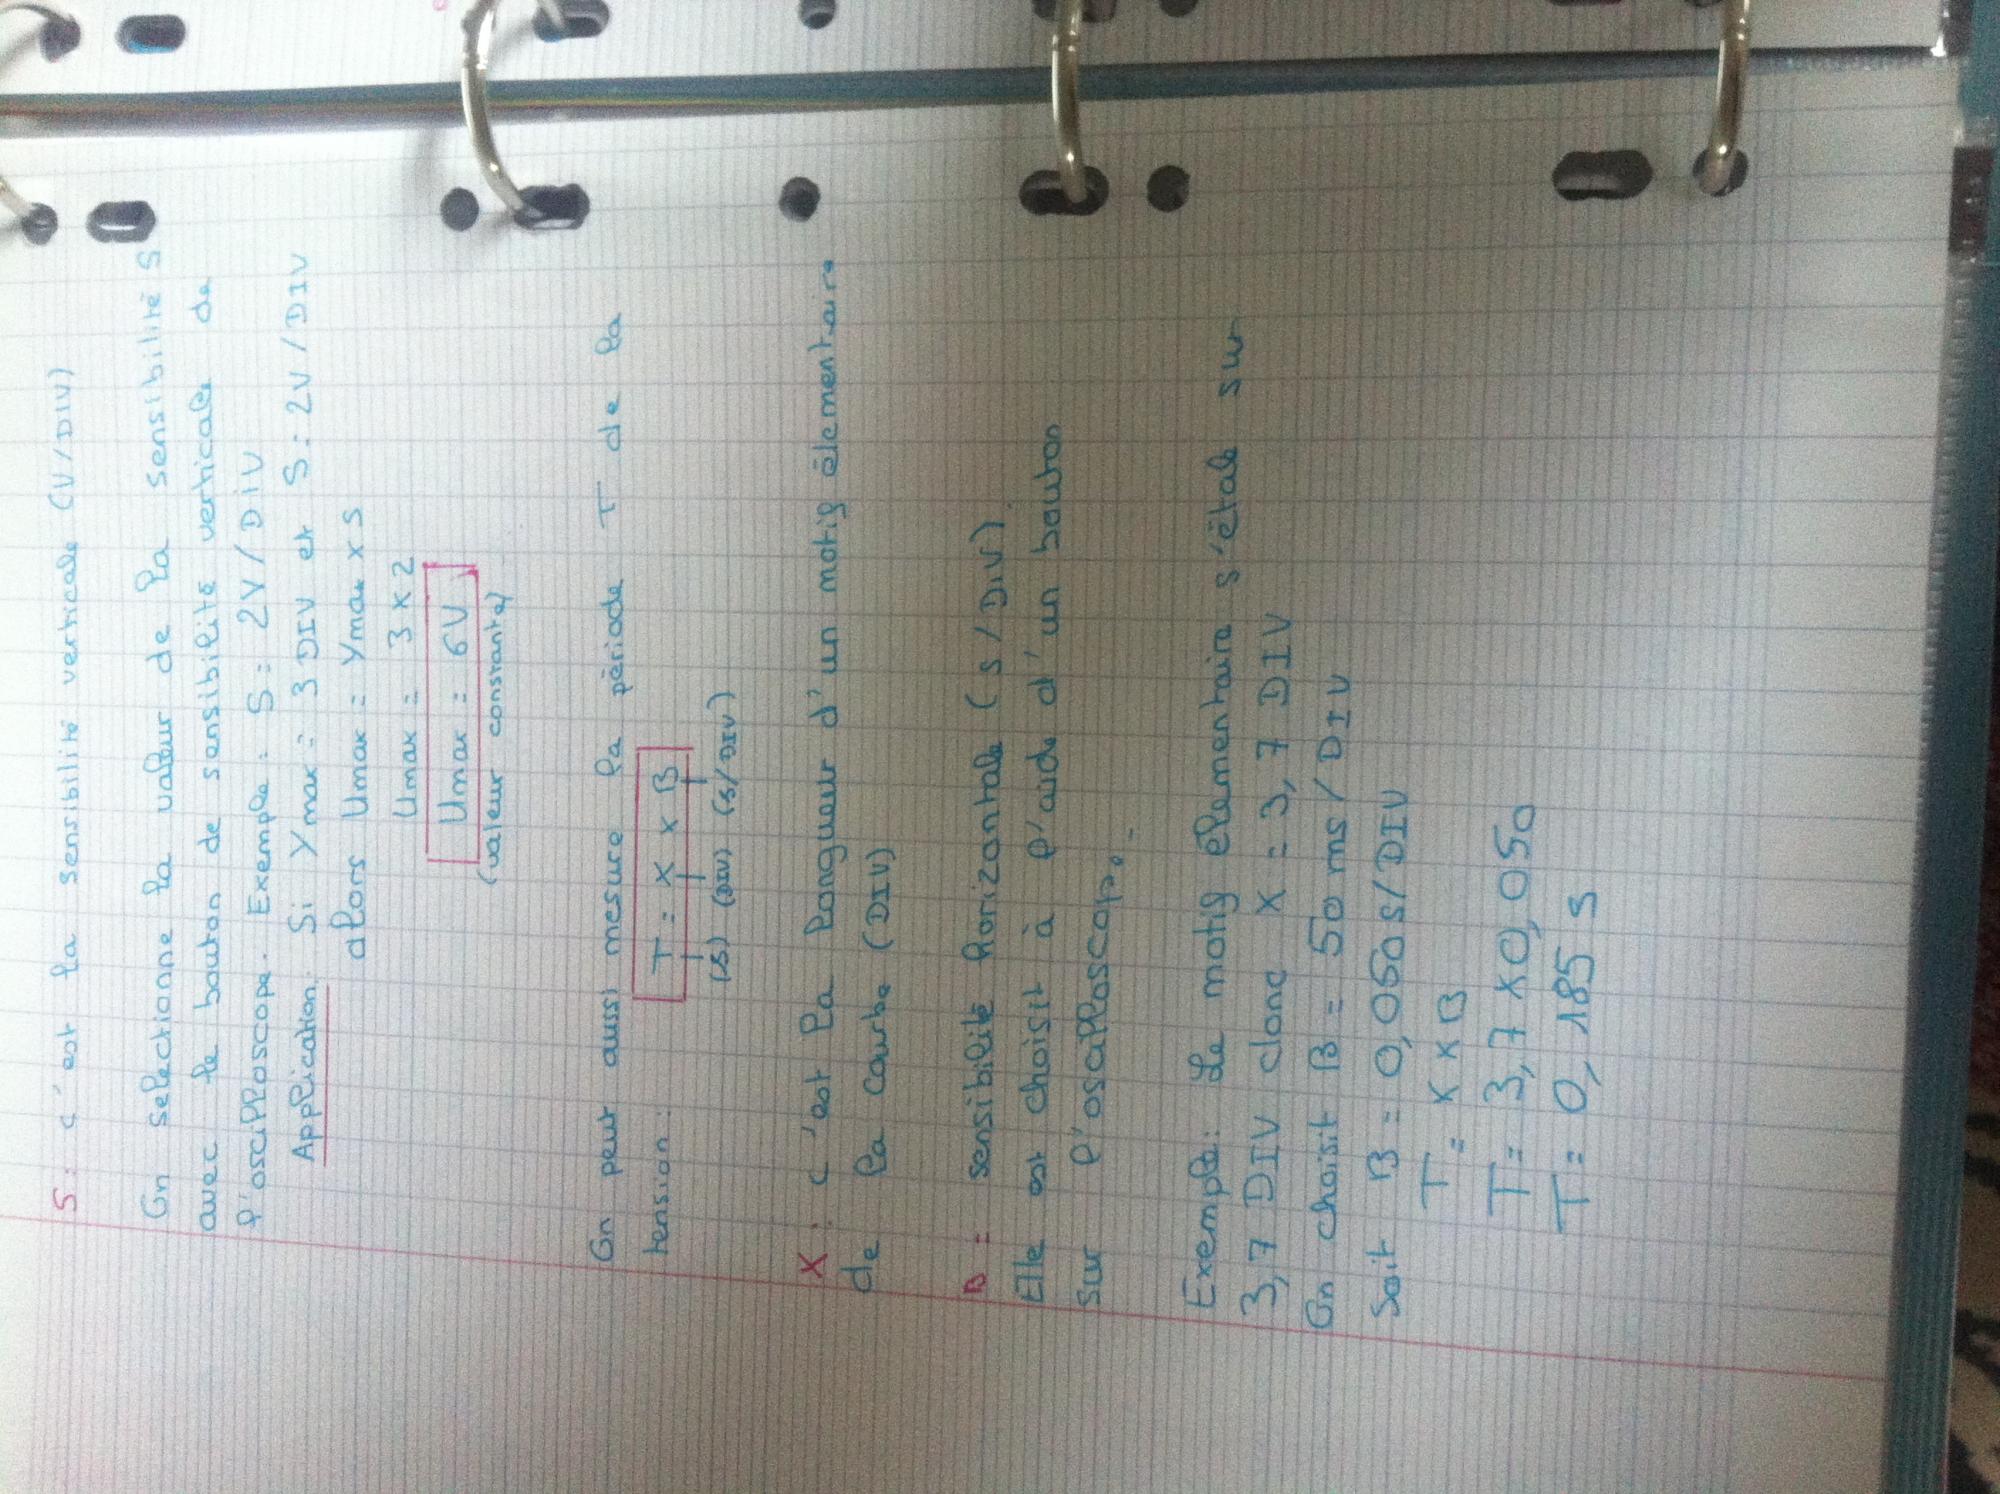 S: c'est la sensibilité verticale (V/DIV)
On selectionne la valeur de la sensibilité S
avec le bouton de sensibilité verticale de
l'oscilloscope. Exemple: S: 2V/DiV
Application: Si Ymax = 3 DIV et S: 2V/DIV
alors Umax = Ymax x S
Umax = 3 x 2
Umax = 6V
(valeur constante)
On peut aussi mesure la période T de la
tension:
T = X x B
(s) (DIV) (s/DIV)
X: c'est la longueur d'un motif élementaire
de la courbe (DIV)
B = sensibilité horizontale (s/DIV)
Elle est choisit à l'aide d'un bouton
sur l'oscilloscope.
Exemple: Le motif élementaire s'étale sur
3,7 DIV donc X = 3,7 DIV
On choisit B = 50 ms/DIV
Soit B = 0,050 s/DIV
T = X x B
T = 3,7 x 0,050
T = 0,185 s